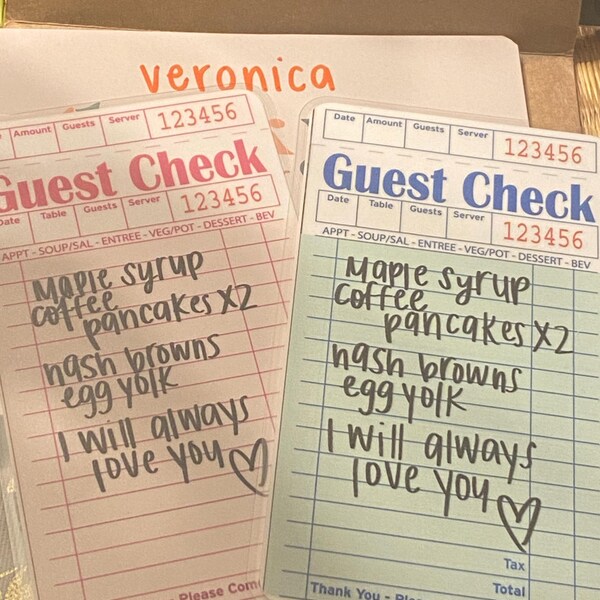 veronica
Amount Guests Server 123456
Guest Check
Date Table Guests Server 123456
APPT - SOUP/SAL - ENTREE - VEG/POT - DESSERT - BEV
Maple syrup
coffee
pancakes x2
hash browns
egg yolk
I will always
love you ♡
Please Com
Date Amount Guests Server 123456
Guest Check
Date Table Guests Server 123456
APPT - SOUP/SAL - ENTREE - VEG/POT - DESSERT - BEV
Maple syrup
coffee
pancakes x2
hash browns
egg yolk
I will always
love you ♡
Tax
Total
Thank You - Ple